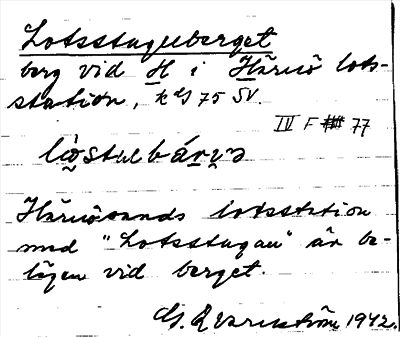 Lotsstuguberget
berg vid H i Härnö lots-
station, k bl 75 SV.
IV F 77
lòstubárjə
Härnösands lotsstation
med "Lotsstugan" är be-
lägen vid berget.
G. Qvarnström 1942.